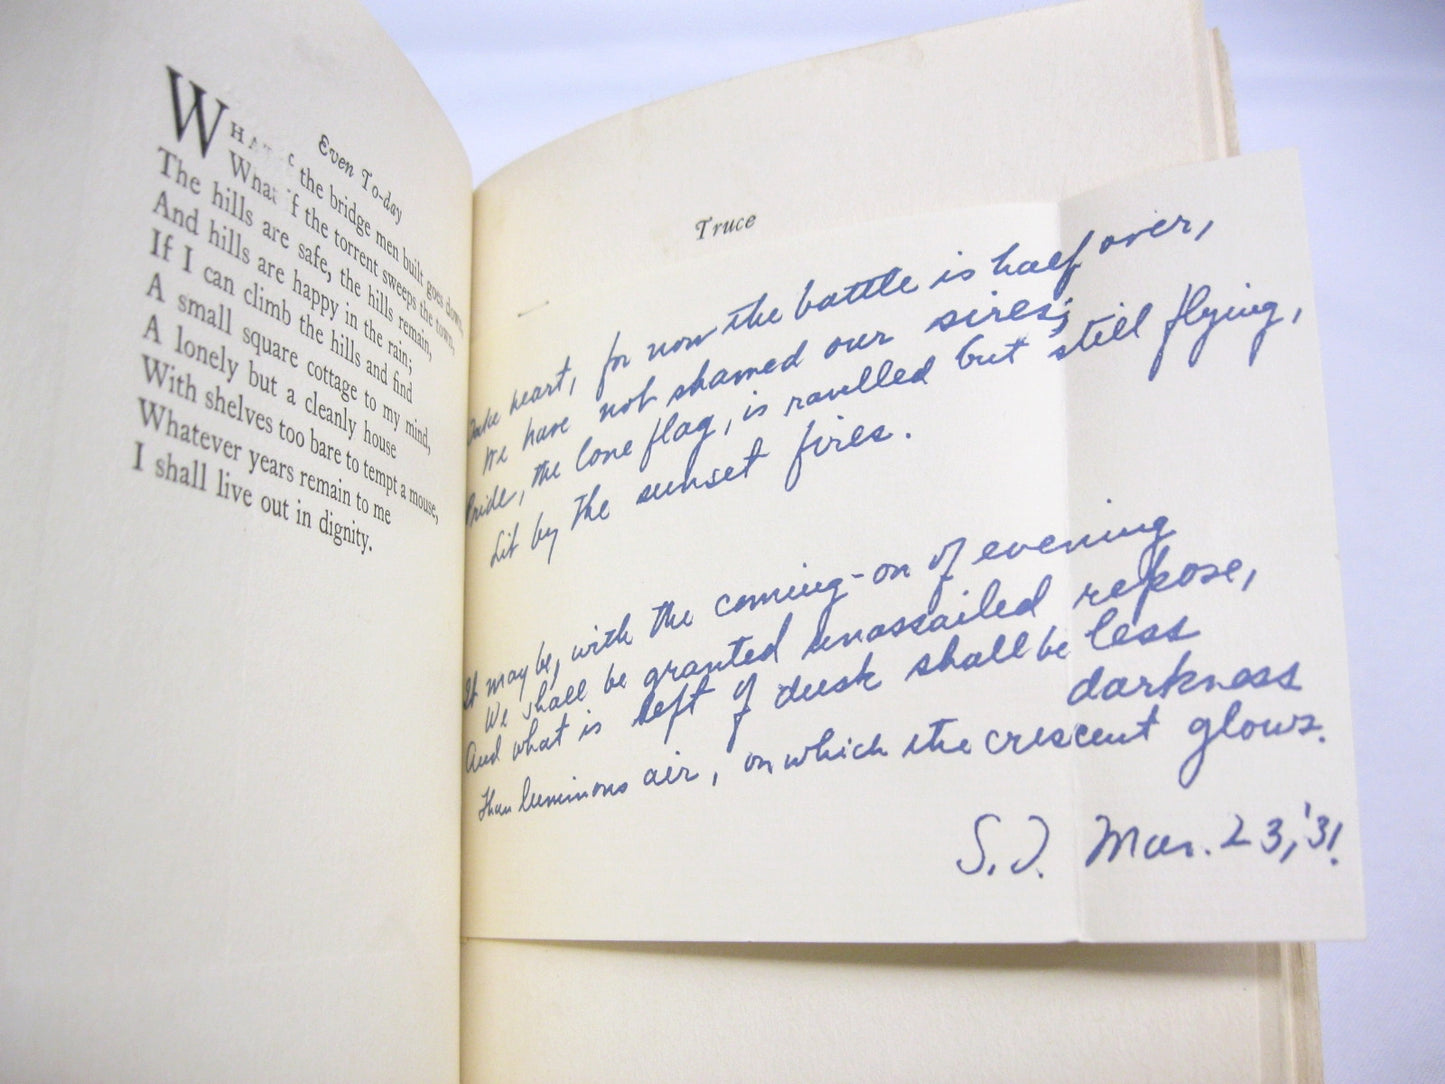 Even To-day
WHAT if the bridge men built goes down,
What if the torrent sweeps the town,
The hills are safe, the hills remain,
And hills are happy in the rain;
If I can climb the hills and find
A small square cottage to my mind,
A lonely but a cleanly house
With shelves too bare to tempt a mouse,
Whatever years remain to me
I shall live out in dignity.
Truce
Take heart, for now the battle is half over,
We have not shamed our sires;
Pride, the lone flag, is ravelled but still flying,
Lit by the sunset fires.
It may be, with the coming-on of evening
We shall be granted unassailed repose,
And what is left of dusk shall be less
darkness
Than luminous air, on which the crescent glows.
S.T. Mar. 23, '31.